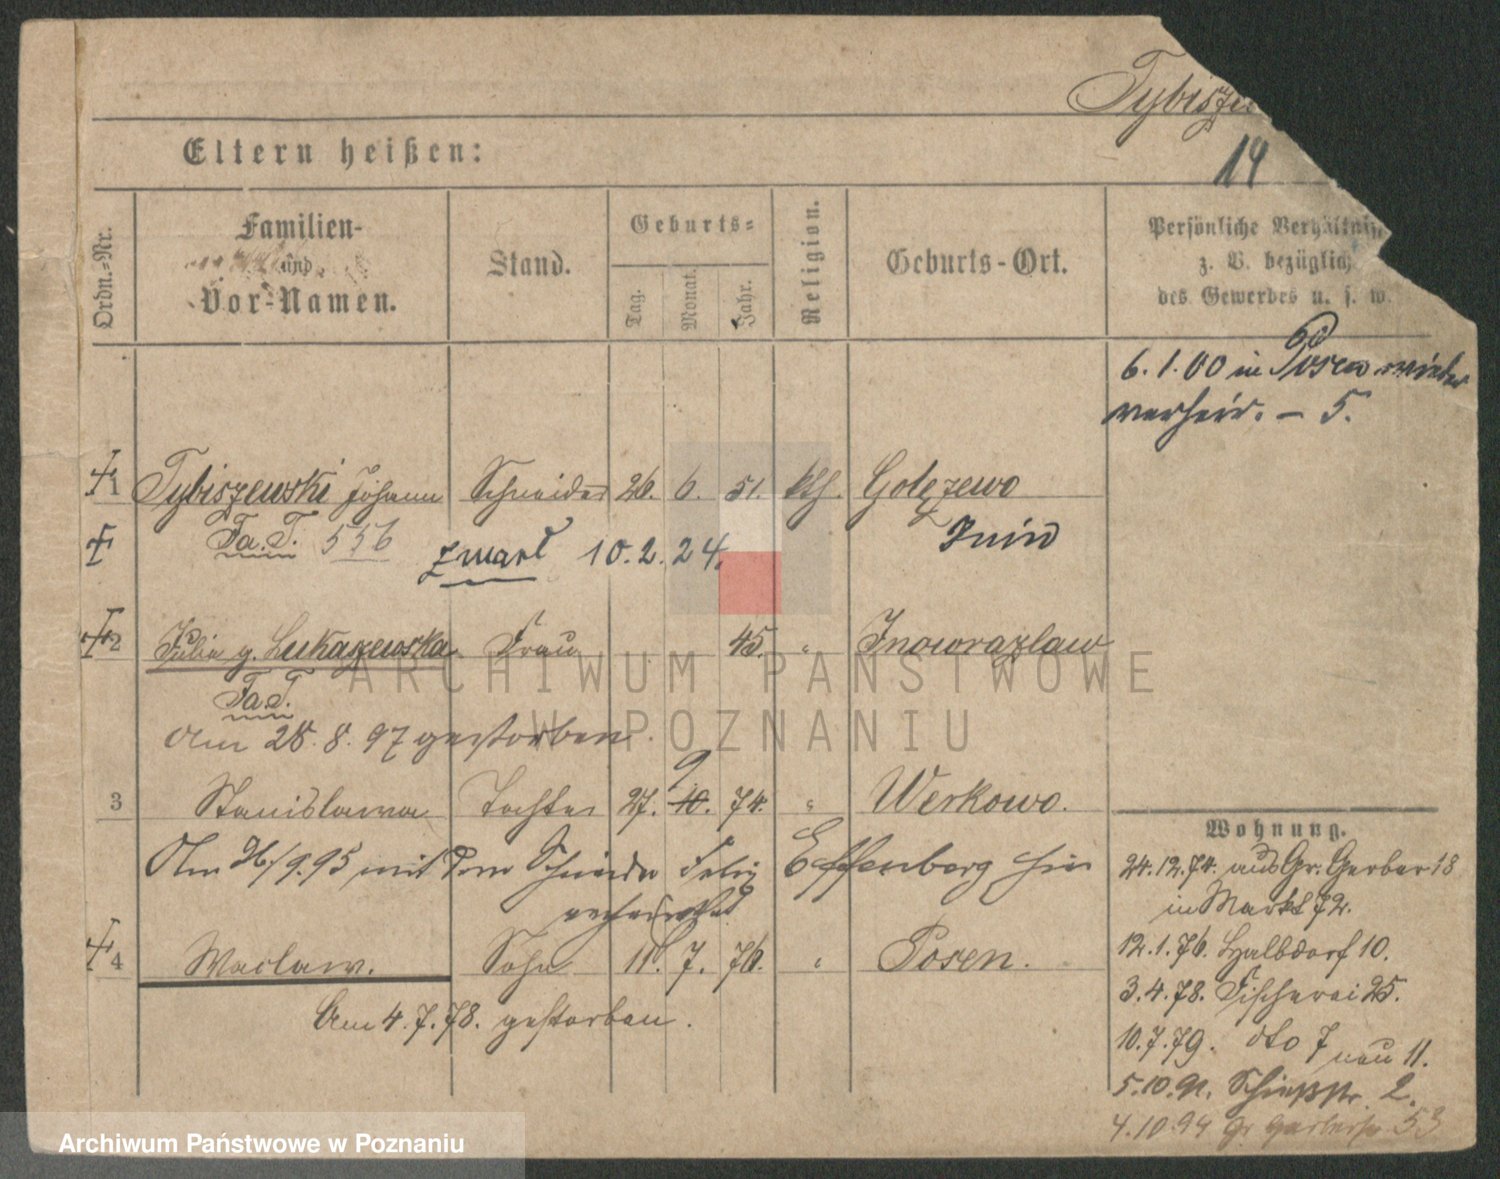 Tybisze
14
Eltern heißen:
Ordn.-Nr.
Familien-
und
Vor-Namen.
Stand.
Geburts-
Tag.
Monat.
Jahr.
Religion.
Geburts-Ort.
Persönliche Verhältniss
z. B. bezüglich
des Gewerbes u. s. w.
6. 1. 00 in Posen wieder
verheir. – 5.
1 Tybiszewski Johann Schneider 26. 6. 51. kth. Golezewo
Fa. T. 556 zmarł 10. 2. 24. Znin
2 Julia g. Lukaszewska Frau 45. " Inowrazlaw
Fa. T.
Am 28. 8. 97 gestorben.
3 Stanislawa Tochter 27. 10. 9 74. " Werkowo.
Am 26/9. 95 mit dem Schneider Felix Effenberg hier
verheirathet
4 Waclaw. Sohn 11. 7. 76. " Posen.
Am 4. 7. 78. gestorben.
Wohnung.
24. 12. 74. aus Gr. Gerber 18
in Markt 72.
12. 1. 76. Halbdorf 10.
3. 4. 78. Fischerei 25.
10. 7. 79. dto 7 neu 11.
5. 10. 91. Schießstr. 2.
4. 10. 94 Gr. Gerberstr 53
ARCHIWUM PAŃSTWOWE
W POZNANIU
Archiwum Państwowe w Poznaniu